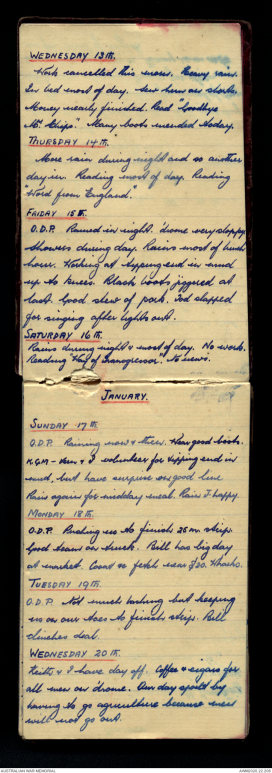 WEDNESDAY 13TH.
Work cancelled this morn. Heavy rain.
In bed most of day. Sew hem on shorts.
Money nearly finished. Read "Goodbye
Mr Chips". Many boots mended today.
THURSDAY 14TH.
More rain during night and so another
day in. Reading most of day. Reading
"Word from England".
FRIDAY 15TH.
O.D.P. Rained in night. 'drome very sloppy
showers during day. Rains most of lunch
hour. Working at tipping end in mud
up to knees. Black boots jiggered at
last. Good stew of pork. Tod slapped
for singing after lights out.
SATURDAY 16TH.
Rains during night & most of day. No work.
Reading "Way of Transgressor". No news.
JANUARY.
SUNDAY 17TH
O.D.P. Raining now & then. Hear good boots.
K.G.M – Ken & I volunteer for tipping end in
mud, but have surprise on good line
Rain again for midday meal. Rain I happy.
MONDAY 18TH.
O.D.P. Pushing us to finish 25m strip.
Good team on truck. Bill has big day
at market. Coast to fetch over $20.
TUESDAY 19TH.
O.D.P. Not much bashing but keeping
us on our toes to finish strip. Bill
clinches deal.
WEDNESDAY 20TH.
Keith & I have day off. Coffee & cigars for
all men on drome. Our day spoilt by
having to go agriculture because men
will not go out.
AUSTRALIAN WAR MEMORIAL